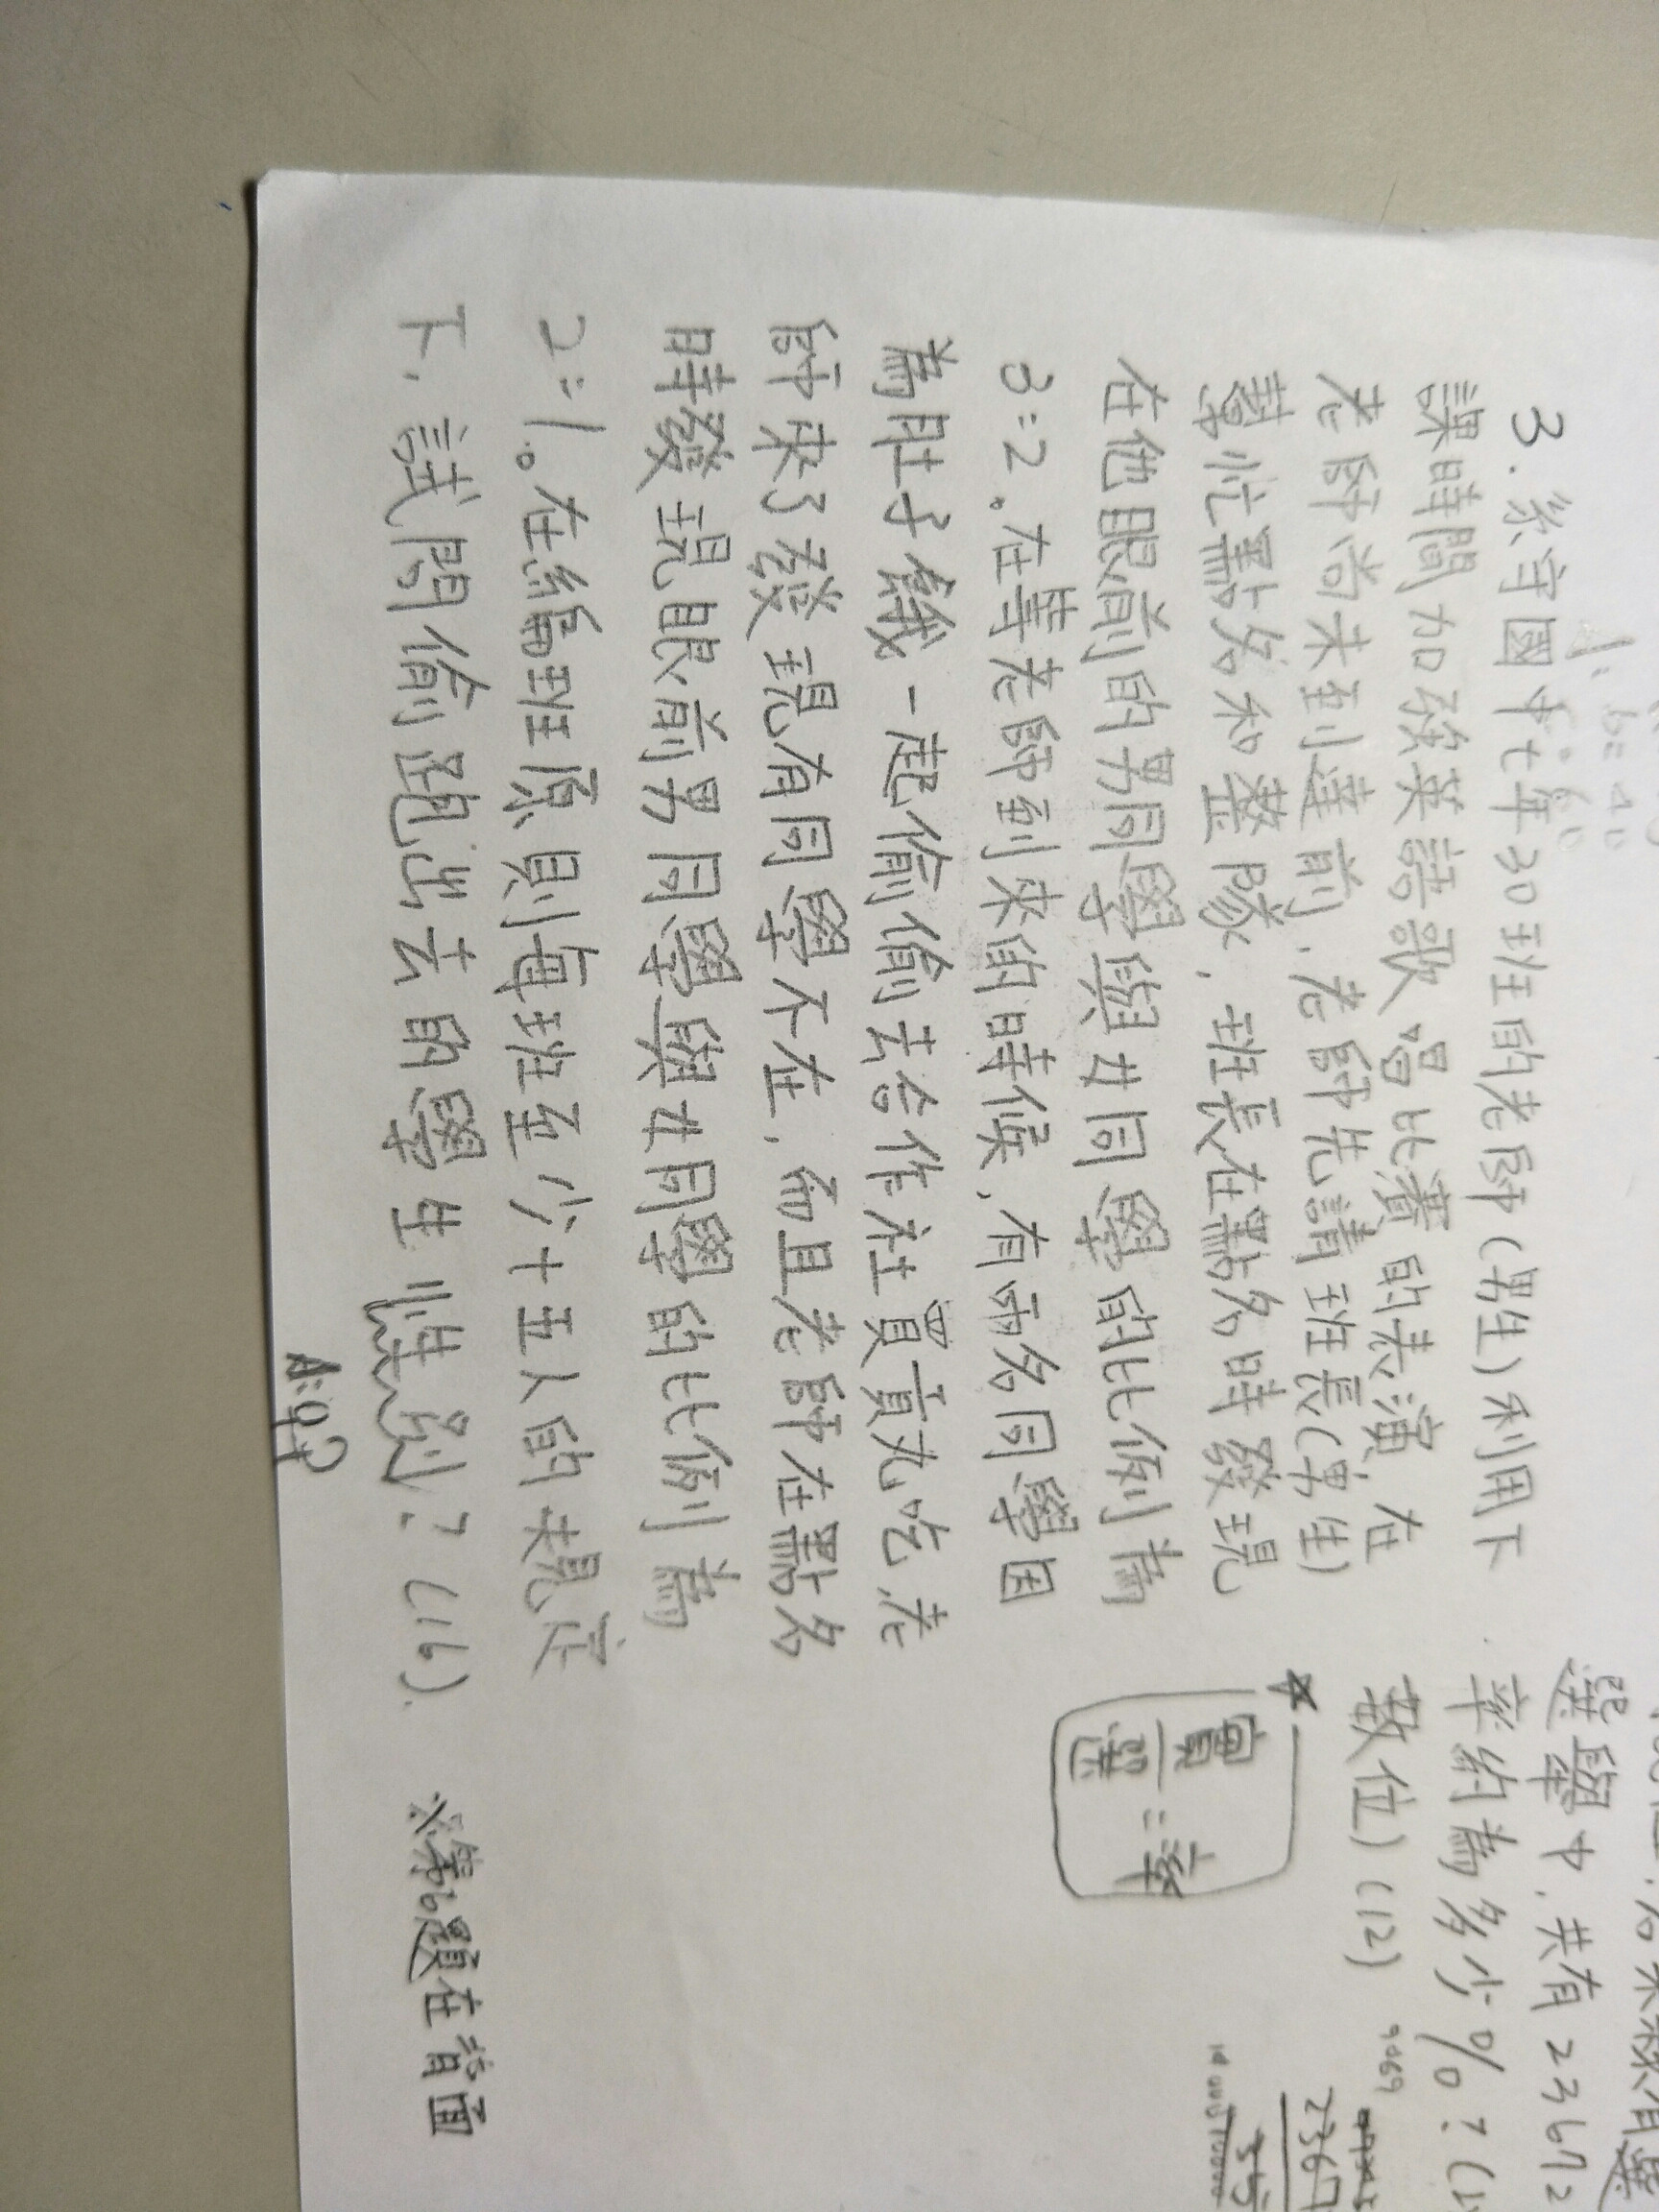 3.系守國中七年30班的老師(男生)利用下
課時間加強英語歌唱比賽的表演,在
老師尚未到達前,老師先請班長(男生)
幫忙點名和整隊,班長在點名時發現
在他眼前的男同學與女同學的比例為
3:2。在等老師到來的時候,有兩名同學因
為肚子餓一起偷偷去合作社買貢丸吃,老
師來了發現有同學不在,而且老師在點名
時發現眼前男同學與女同學的比例為
2:1。在編班原則每班至少十五人的規定
下,試問偷跑出去的學生性別?(16).
A:女
選舉中,共有23672
率約為多少%?(
數位)(12)
☆
實
選
=率
2367
※第 題在背面